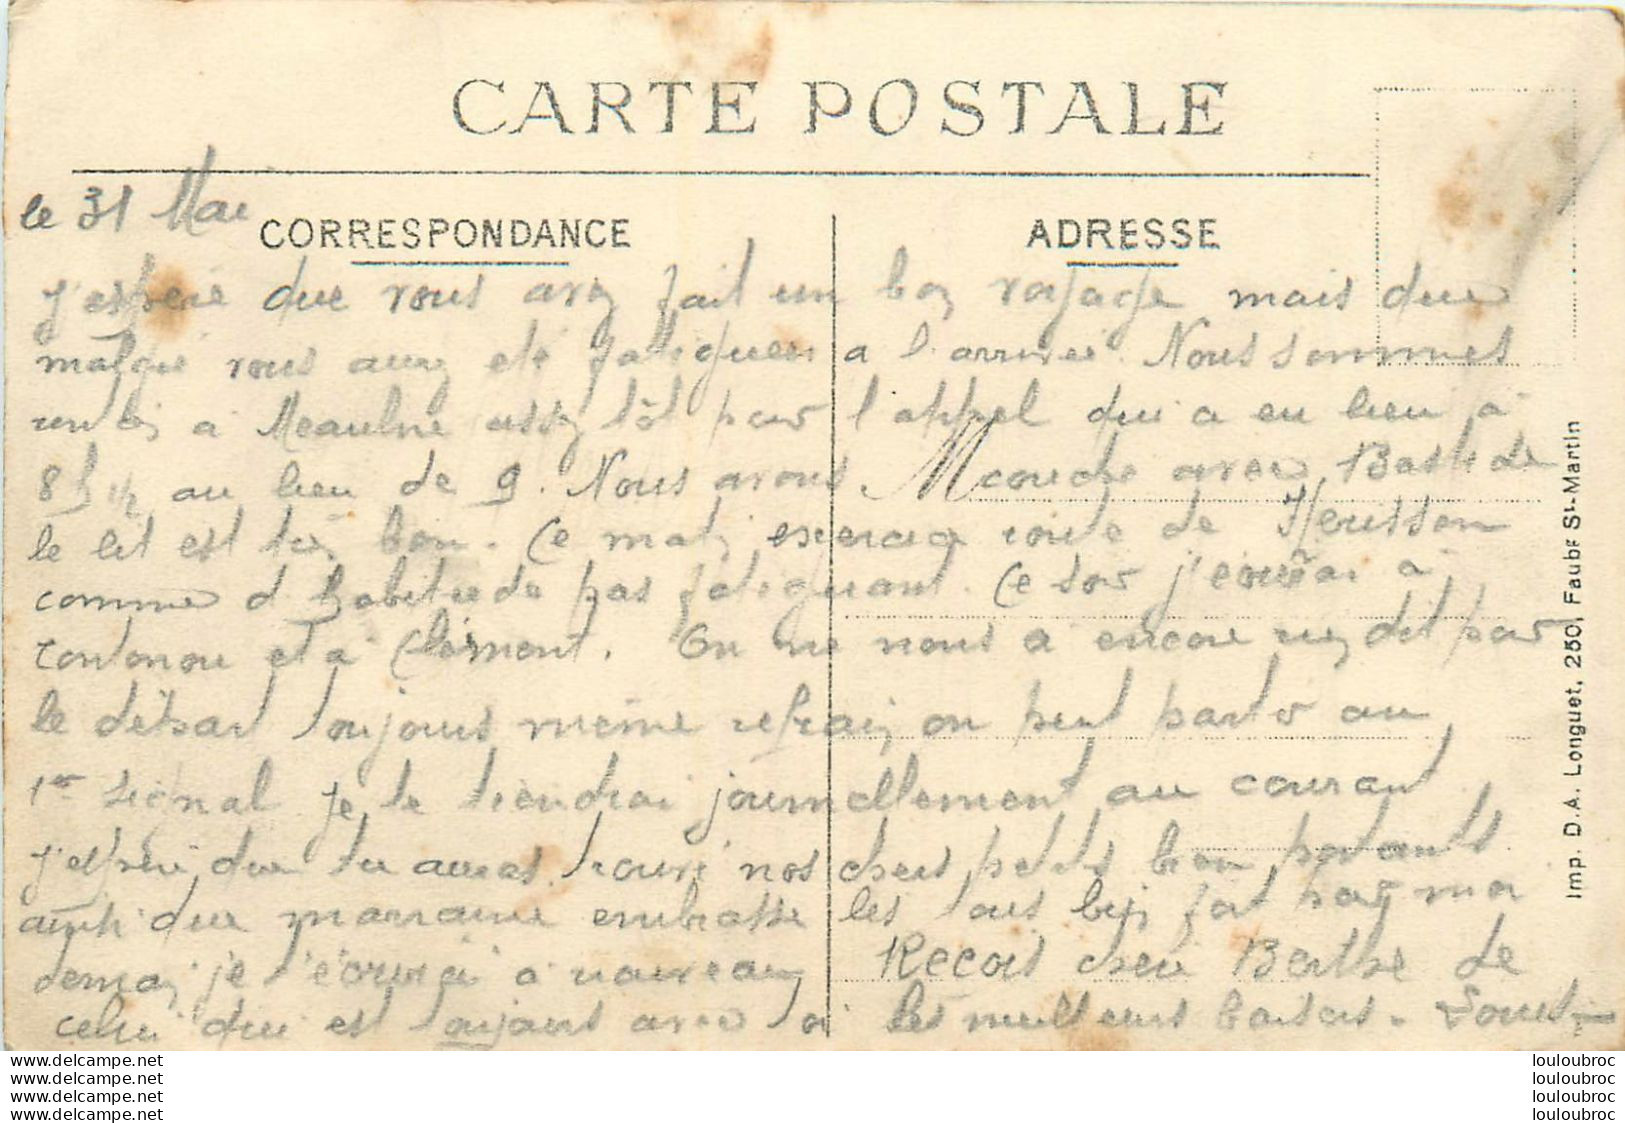 CARTE POSTALE
le 31 Mai
CORRESPONDANCE
ADRESSE
J'espère que vous avez fait un bon voyage mais que
malgré vous aurez eté fatiguées a l'arrivée. Nous sommes
rendus à Meaulne assez tôt pour l'appel qui a eu lieu à
8h 1/2 au lieu de 9. Nous avons couché avec Bastide
le lit est très bon. Ce matin exercice route de Herisson
comme d'habitude pas fatiguant. Ce soir j'écrirai à
et à Clémont. On ne nous a encore rien dit pour
le départ toujours même refrain, on peut partir au
1er signal je te tiendrai journellement au courant
J'espère que tu auras trouvé nos chers petits bien portants
ainsi que marraine embrasse les tous bien fort pour moi
demain je t'écrirai à nouveau Recois cheri Berthe de
celui qui est toujours avec toi les meilleurs baisers. Louis
Imp. D.A. Longuet, 250, Faubg St-Martin
delcampe.net
delcampe.net
delcampe.net
delcampe.net
louloubroc
louloubroc
louloubroc
louloubroc